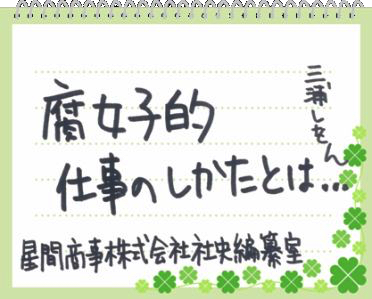 腐女子的
仕事のしかたとは…
三浦しをん
星間商事株式会社社史編纂室